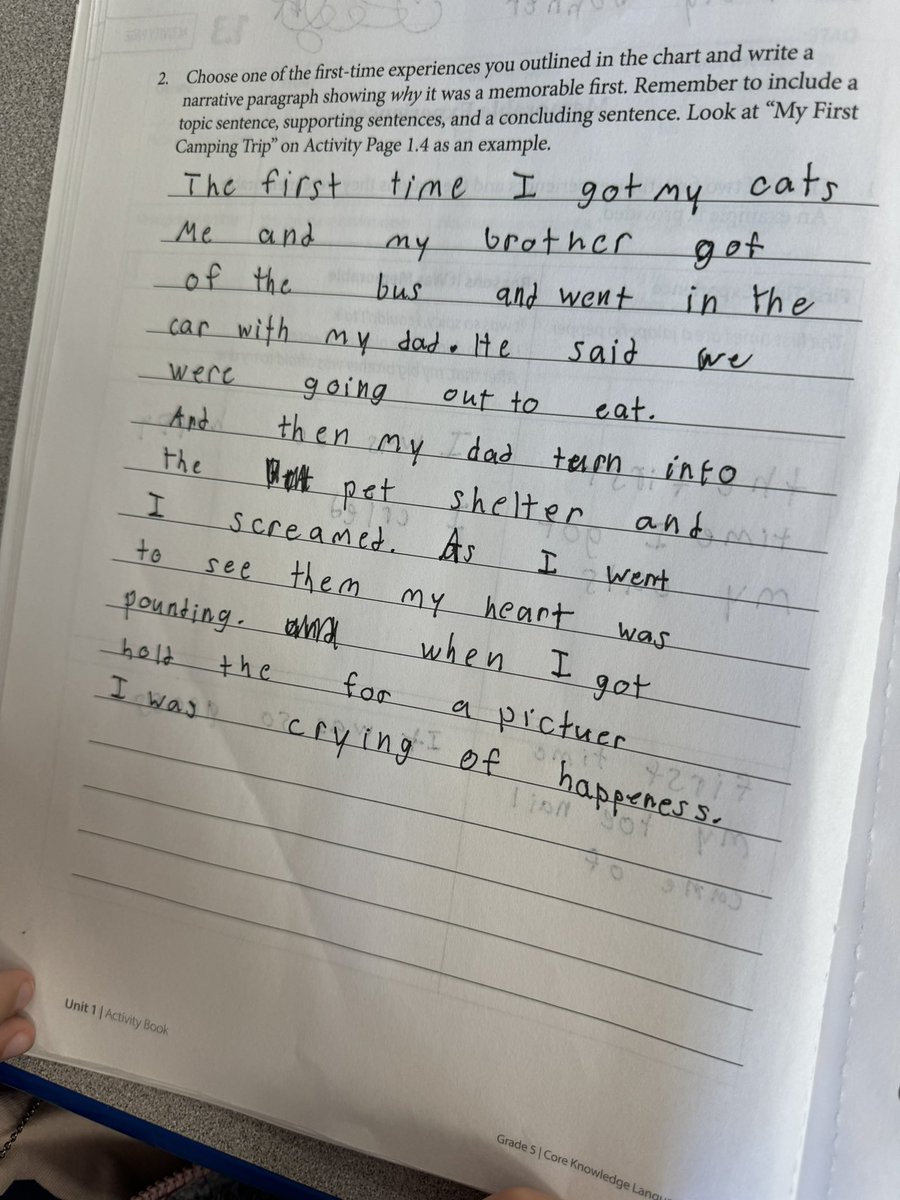 2. Choose one of the first-time experiences you outlined in the chart and write a
narrative paragraph showing why it was a memorable first. Remember to include a
topic sentence, supporting sentences, and a concluding sentence. Look at “My First
Camping Trip” on Activity Page 1.4 as an example.
The first time I got my cats
Me and my brother got
of the bus and went in the
car with my dad. He said we
were going out to eat.
And then my dad turn into
the pet shelter and
I screamed. As I went
to see them my heart was
pounding. and when I got
hold the for a pictuer
I was crying of happeness.
Unit 1 | Activity Book
Grade 5 | Core Knowledge Langu